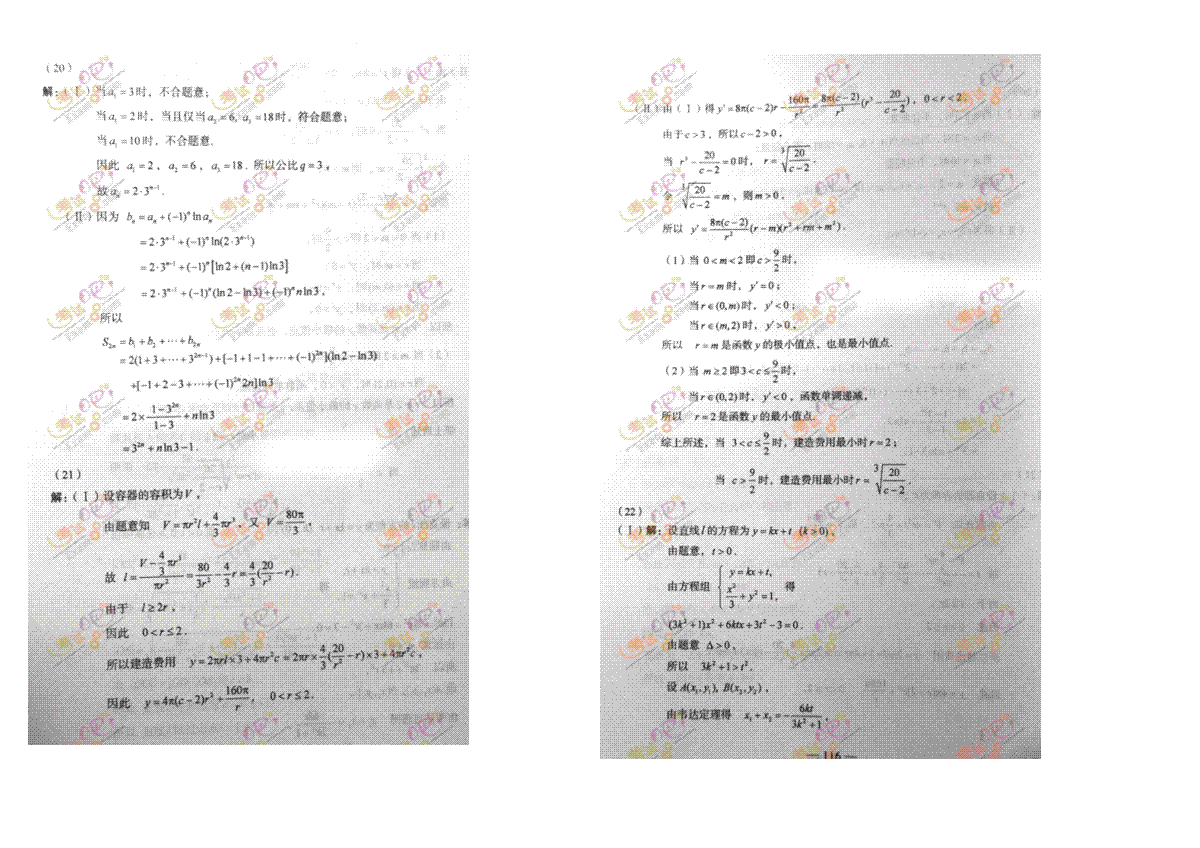 (20)
解：(Ⅰ) 当 a₁ = 3 时，不合题意；
当 a₁ = 2 时，当且仅当 a₂ = 6, a₃ = 18 时，符合题意；
当 a₁ = 10 时，不合题意.
因此 a₁ = 2，a₂ = 6，a₃ = 18．所以公比 q = 3，
故 aₙ = 2·3ⁿ⁻¹．
(Ⅱ) 因为 bₙ = aₙ + (−1)ⁿ ln aₙ
= 2·3ⁿ⁻¹ + (−1)ⁿ ln(2·3ⁿ⁻¹)
= 2·3ⁿ⁻¹ + (−1)ⁿ[ln2 + (n−1)ln3]
= 2·3ⁿ⁻¹ + (−1)ⁿ(ln2 − ln3) + (−1)ⁿ n ln3，
所以
S₂ₙ = b₁ + b₂ + ⋯ + b₂ₙ
= 2(1 + 3 + ⋯ + 3²ⁿ⁻¹) + [−1 + 1 − 1 + ⋯ + (−1)²ⁿ](ln2 − ln3)
+[−1 + 2 − 3 + ⋯ + (−1)²ⁿ 2n]ln3
= 2 × (1 − 3²ⁿ)/(1 − 3) + n ln3
= 3²ⁿ + n ln3 − 1．
(21)
解：(Ⅰ) 设容器的容积为 V，
由题意知 V = πr²l + 4/3 πr³，又 V = 80π/3，
故 l = (V − 4/3 πr³)/(πr²) = 80/(3r²) − 4/3 r = 4/3 (20/r² − r)．
由于 l ≥ 2r，
因此 0 < r ≤ 2．
所以建造费用 y = 2πrl × 3 + 4πr²c = 2πr × 4/3 (20/r² − r) × 3 + 4πr²c，
因此 y = 4π(c − 2)r² + 160π/r， 0 < r ≤ 2．
(Ⅱ) 由 (Ⅰ) 得 y′ = 8π(c − 2)r − 160π/r² = 8π(c − 2)/r² (r³ − 20/(c − 2))，0 < r < 2．
由于 c > 3，所以 c − 2 > 0，
当 r³ − 20/(c − 2) = 0 时，r = ³√(20/(c − 2))．
令 ³√(20/(c − 2)) = m，则 m > 0，
所以 y′ = 8π(c − 2)/r² (r − m)(r² + rm + m²)．
(1) 当 0 < m < 2 即 c > 9/2 时，
当 r = m 时，y′ = 0；
当 r ∈ (0, m) 时，y′ < 0；
当 r ∈ (m, 2) 时，y′ > 0，
所以 r = m 是函数 y 的极小值点，也是最小值点.
(2) 当 m ≥ 2 即 3 < c ≤ 9/2 时，
当 r ∈ (0, 2) 时，y′ < 0，函数单调递减，
所以 r = 2 是函数 y 的最小值点.
综上所述，当 3 < c ≤ 9/2 时，建造费用最小时 r = 2；
当 c > 9/2 时，建造费用最小时 r = ³√(20/(c − 2))．
(22)
(Ⅰ) 解：设直线 l 的方程为 y = kx + t (k > 0)，
由题意，t > 0．
由方程组 { y = kx + t, x²/3 + y² = 1, 得
(3k² + 1)x² + 6ktx + 3t² − 3 = 0．
由题意 Δ > 0，
所以 3k² + 1 > t²．
设 A(x₁, y₁), B(x₂, y₂)，
由韦达定理得 x₁ + x₂ = −6kt/(3k² + 1)，
— 116 —